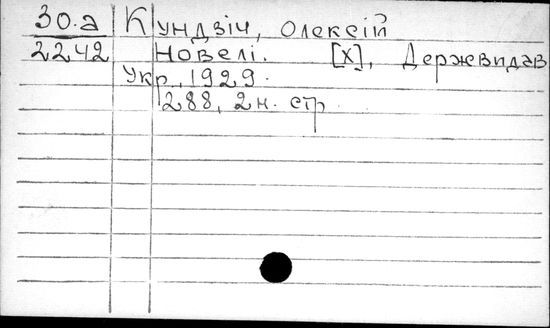 30.а Кундзіч, Олексій
2242 Новелі. [X], Держвидав
Укр, 1929.
288, 2 н. стр